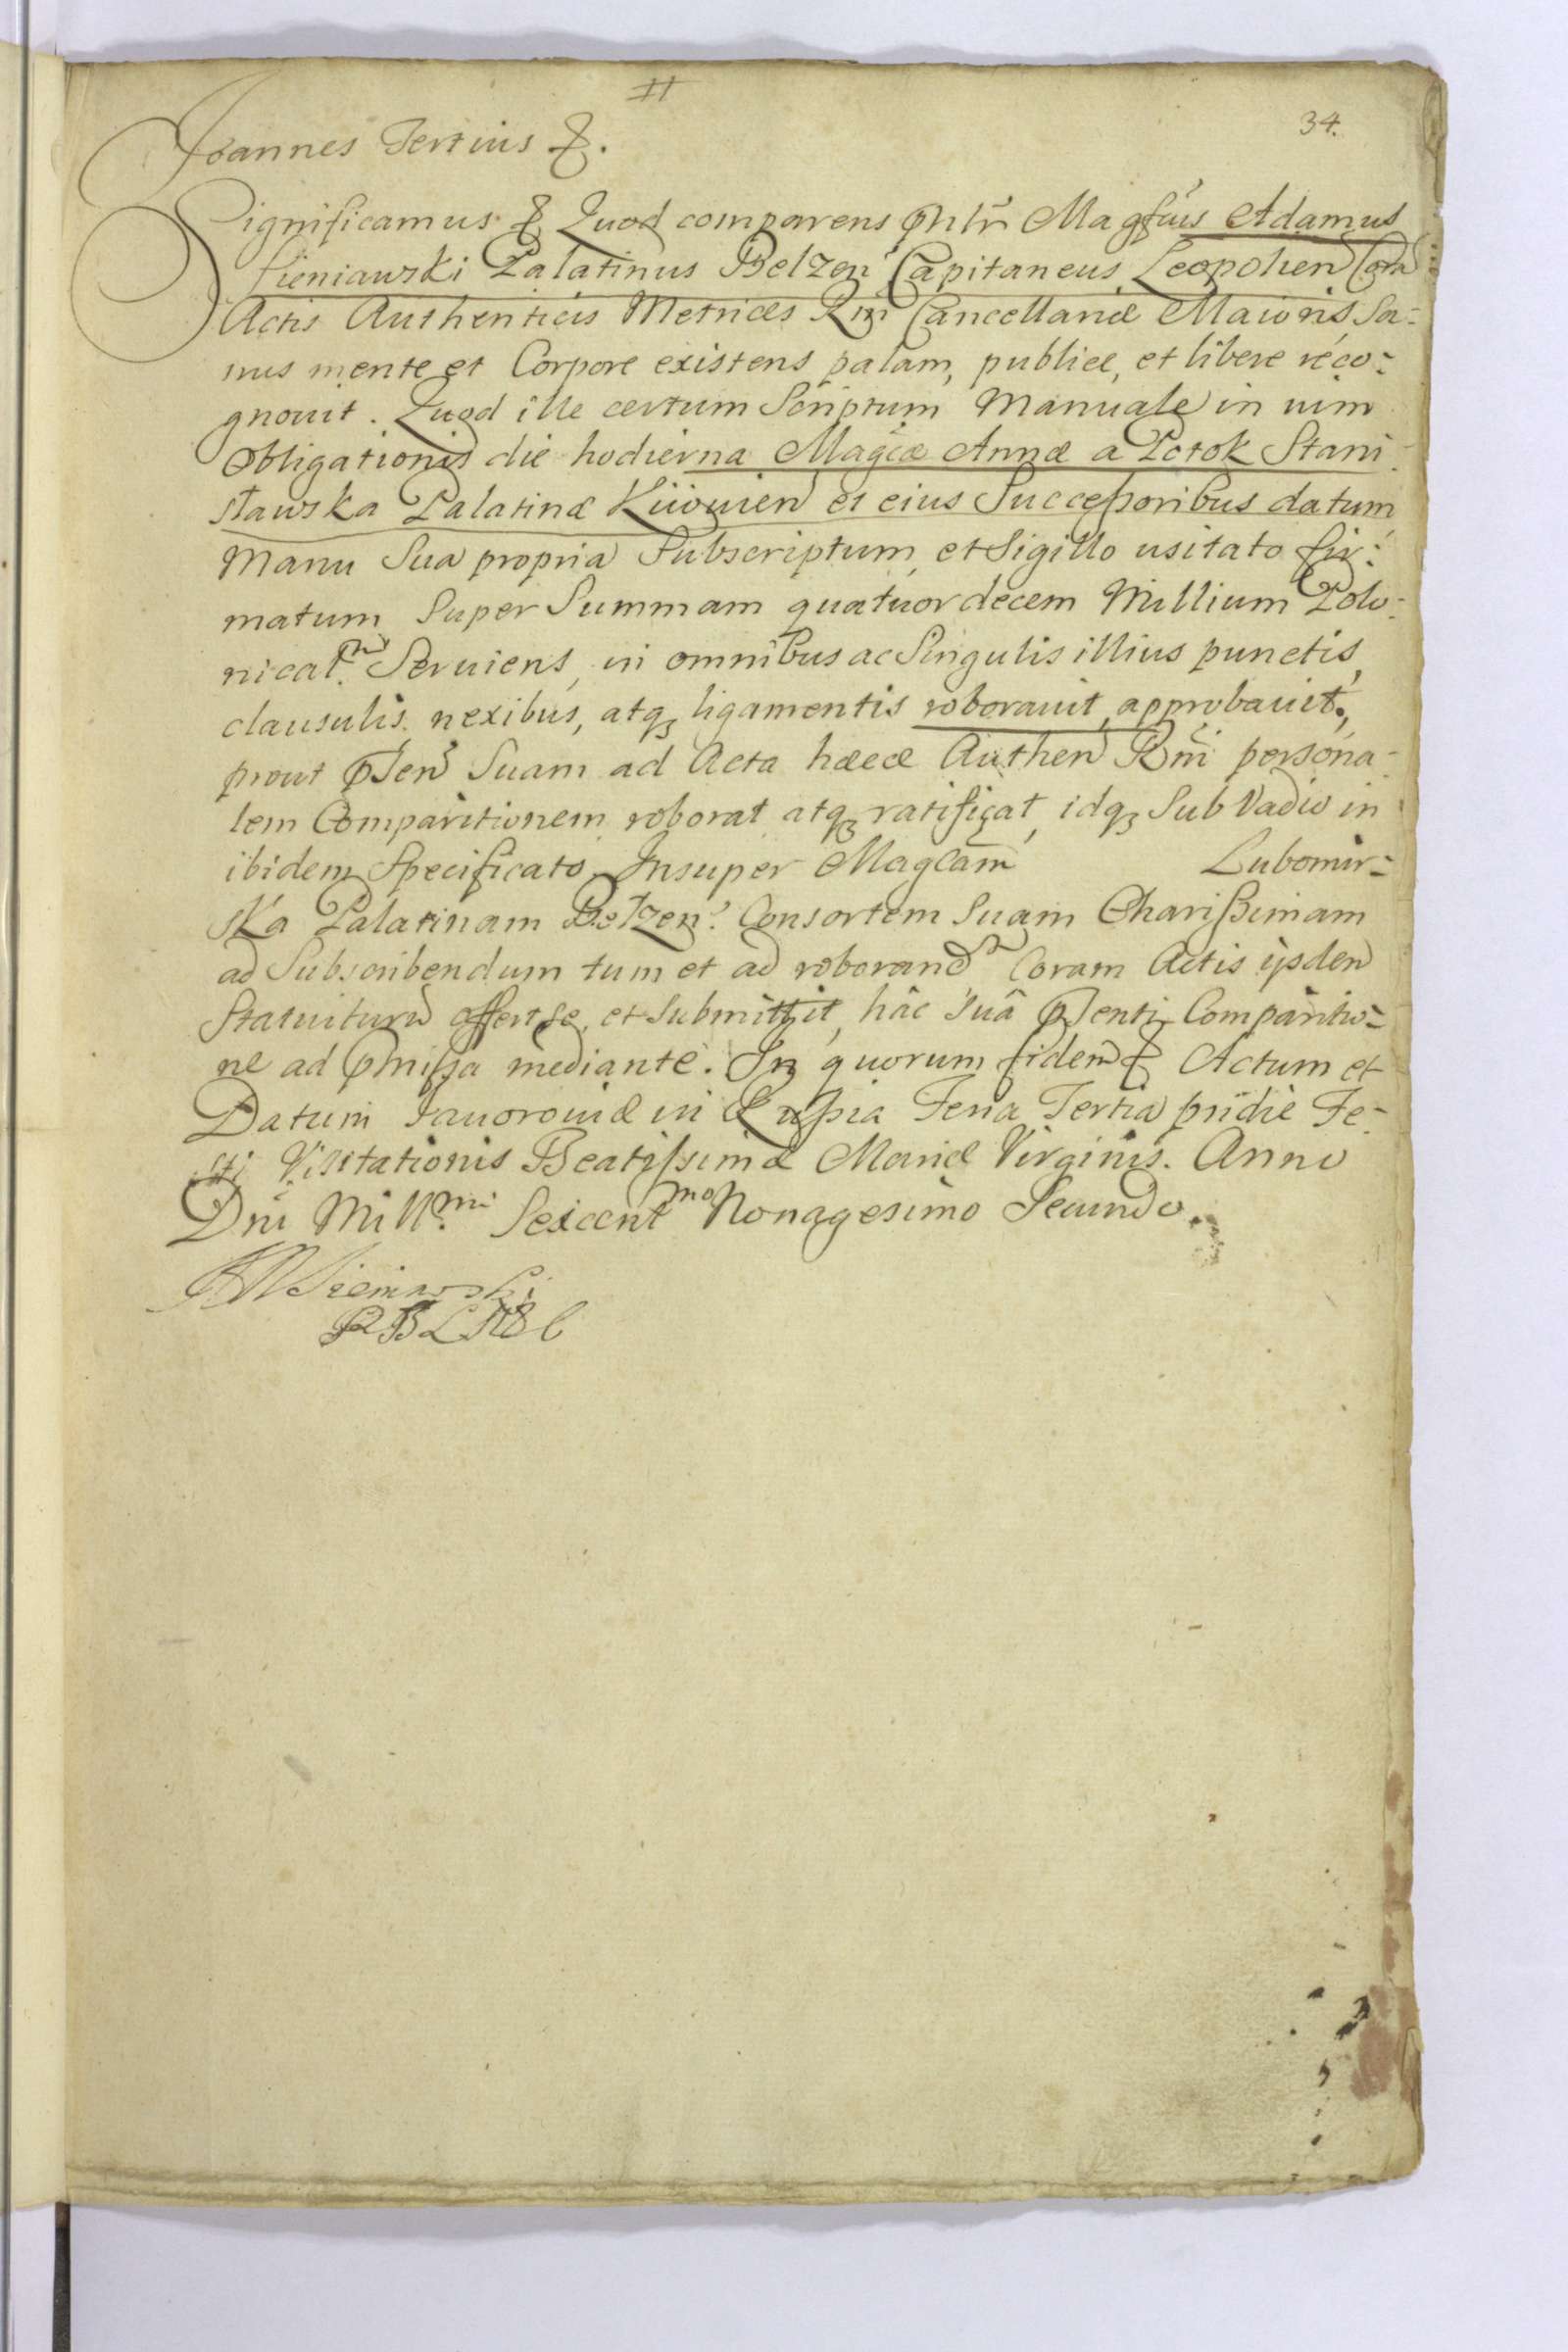 #
34.
Joannes Tertius &.
Significamus & Quod comparens pntr̃ Magfus Adamus
Sieniawski Palatinus Belzeñ Capitaneus Leopolien Cora
Actis Authenticis Metrices Rñi Cancellariæ Maioris, Sa-
nus mente et Corpore existens palam, publice, et libere reco-
gnouit. Quod ille certum Scriptum Manuale in uim
Obligationis die hodierna Magcæ Annæ a Potok Stani
sławska Palatinæ Kijouien et eius Successoribus datum
Manu Sua propria Subscriptum, et Sigillo usitato fir-
matum Super Summam quatuordecem Millium Polo-
nical. Seruiens, in omnibus ac Singulis illius punctis,
clausulis nexibus, atq₃ ligamentis roborauit, approbauit,
prout pñsen Suam ad Acta hæce Authen Rñi persona-
lem Comparitionem roborat atq₃ ratificat, idq₃ Sub Vadio in
ibidem Specificato. Insuper Magcam̃ Lubomir-
ska Palatinam Belzen. Consortem Suam Charissimam
ad Subscribendum tum et ad roborand Coram Actis ijsden
Statuiturū offert se, et submittit, hâc suâ pñsenti Comparitio-
ne ad pmissa mediante. In quorum fidem & Actum et
Datum Iauorouiæ in Russia Feria Tertia pridie Fe-
sti Visitationis Beatissimæ Mariæ Virginis. Anno
Dñi Mill.mi Sexcent mo Nonagesimo Secundo.
Sieniawski